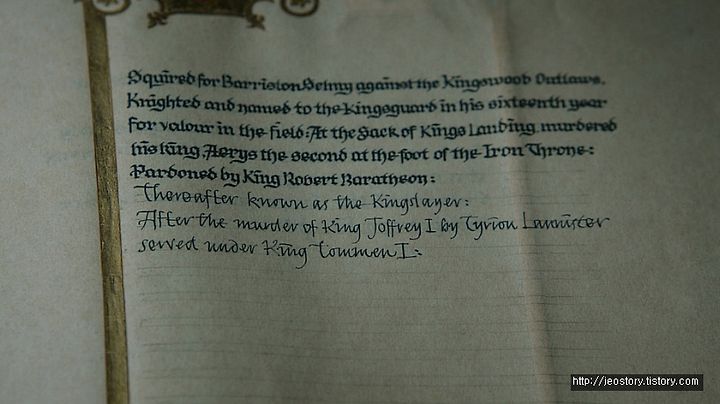 Squired for Barristan Selmy against the Kingswood Outlaws.
Knighted and named to the Kingsguard in his sixteenth year
for valour in the field: At the Sack of Kings Landing murdered
his king Aerys the second at the foot of the Iron Throne:
Pardoned by King Robert Baratheon:
Thereafter known as the Kingslayer:
After the murder of King Joffrey I by Tyrion Lannister
served under King Tommen I:
http://jeostory.tistory.com